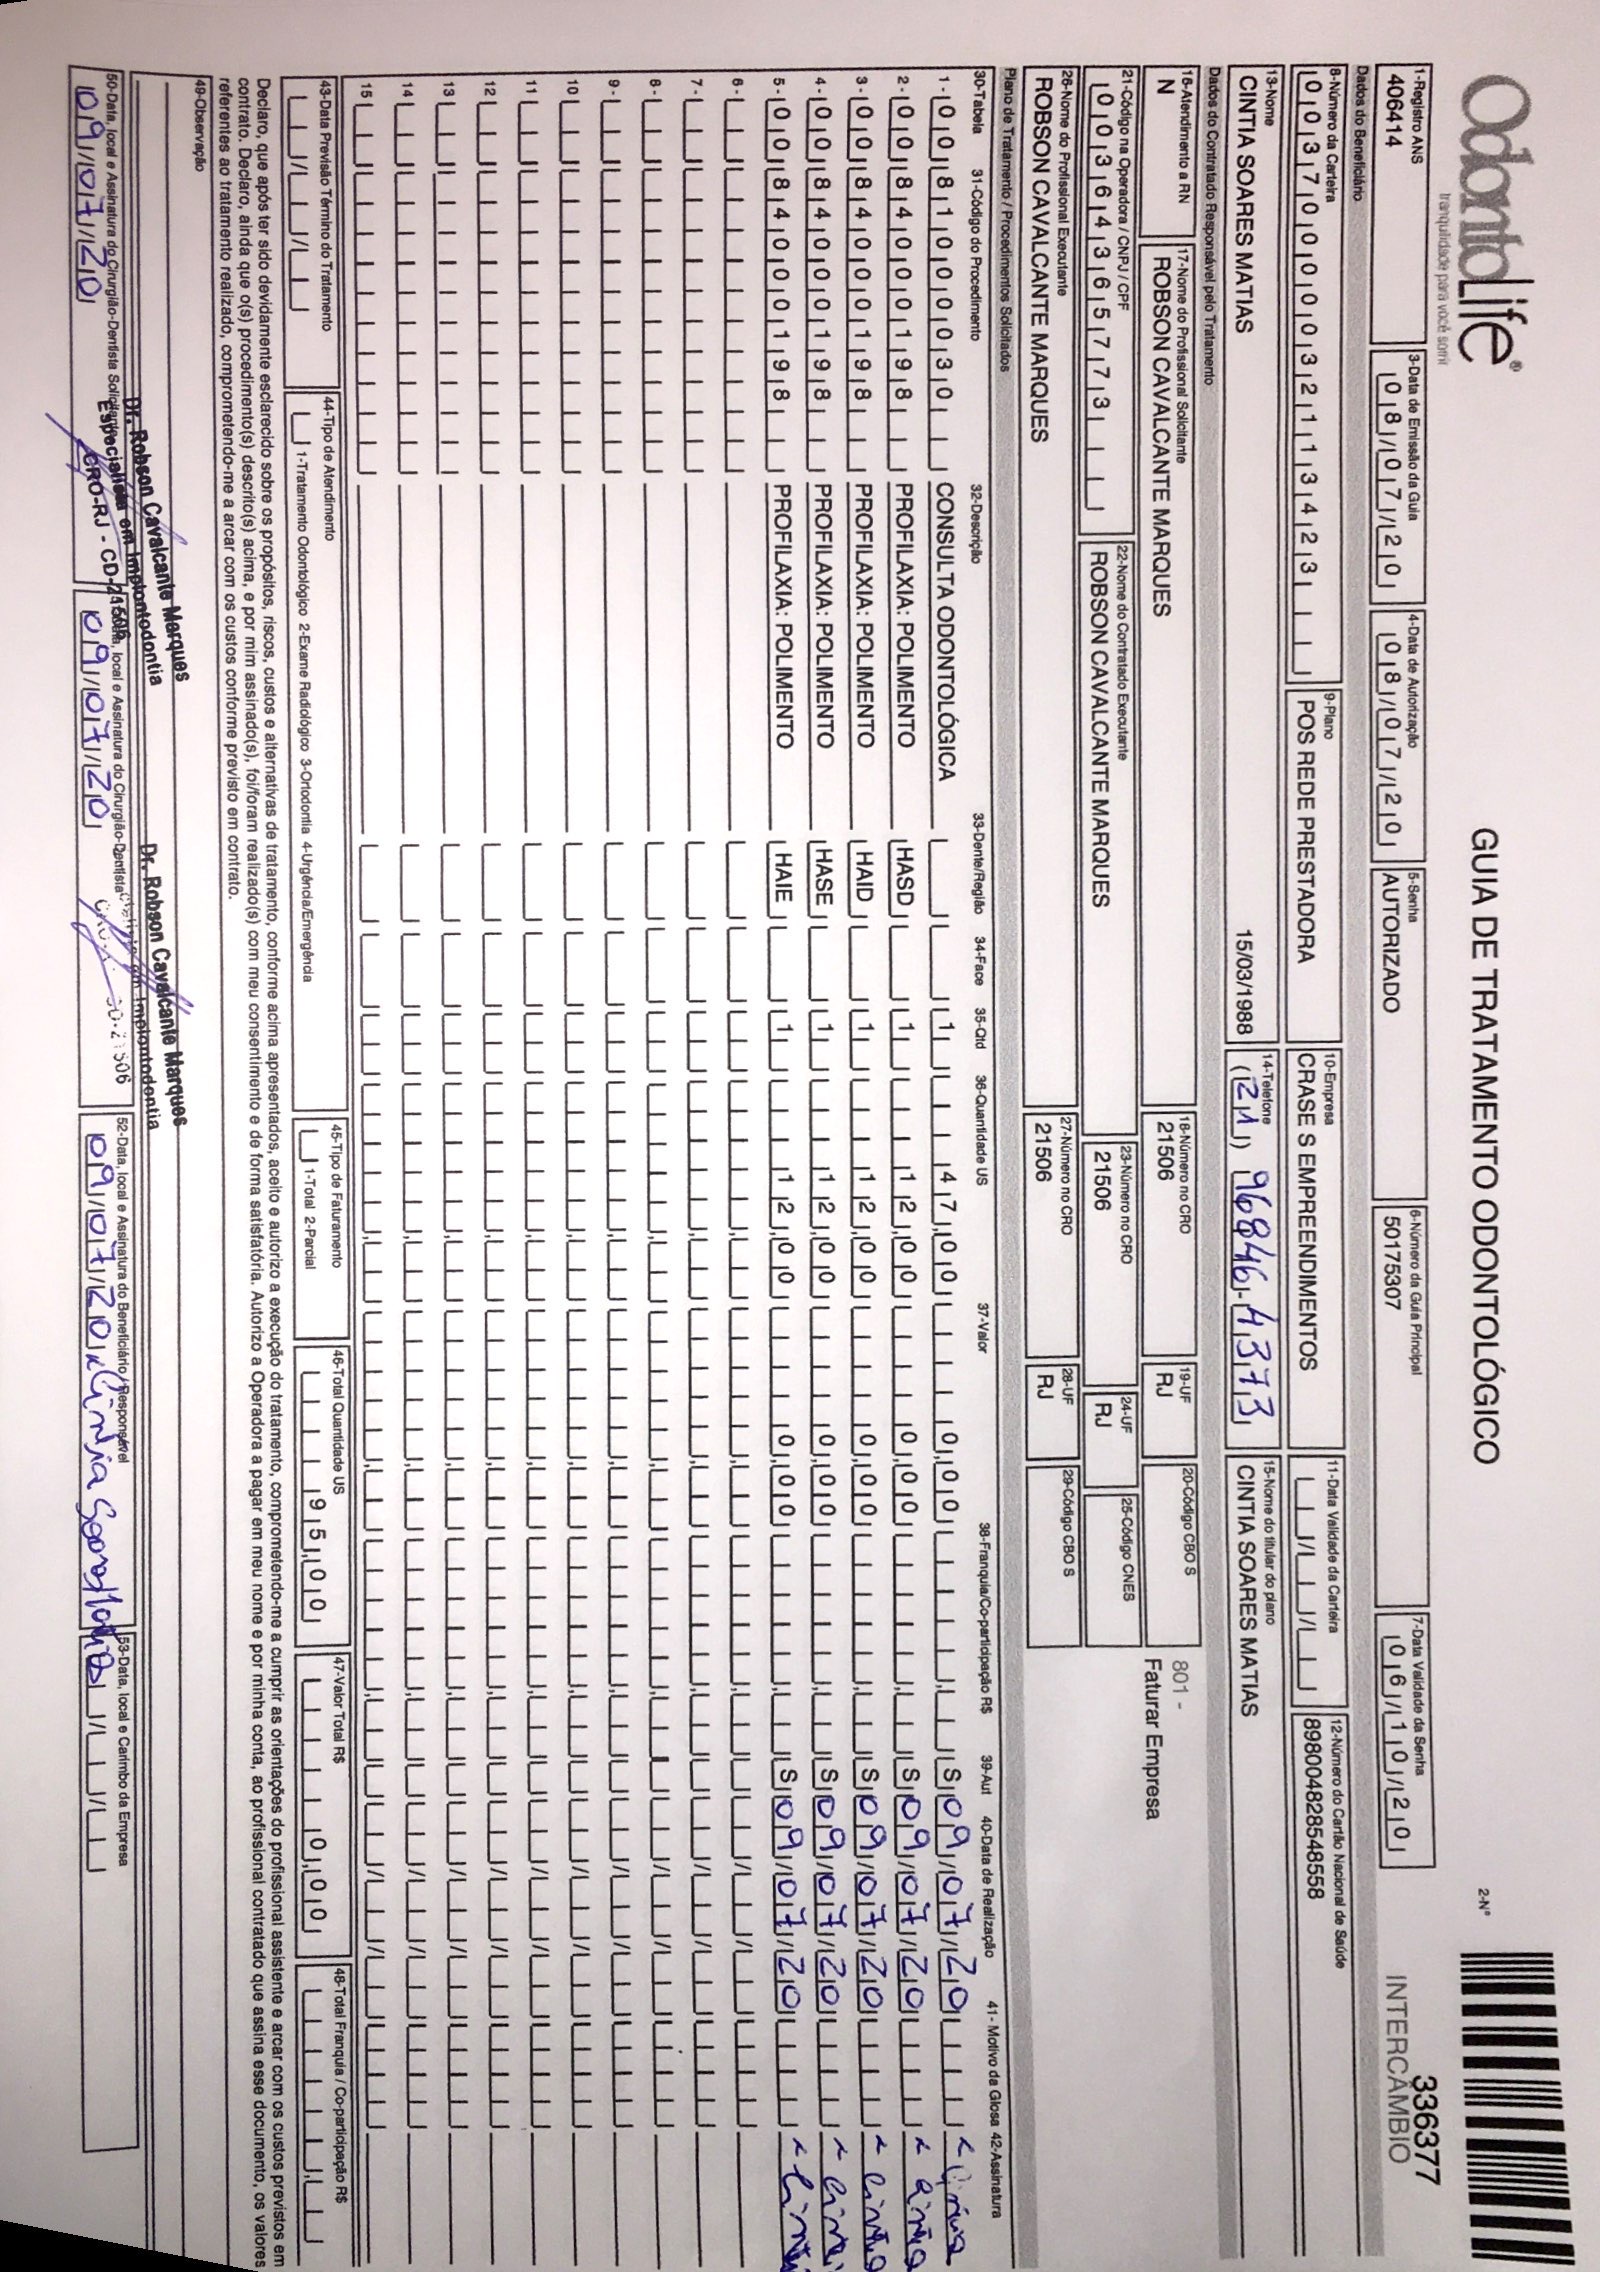 OdontoLife®
tranquilidade para você sorrir
GUIA DE TRATAMENTO ODONTOLÓGICO
2-Nº
336377
INTERCÂMBIO
1-Registro ANS
406414
3-Data de Emissão da Guia
08/07/20
4-Data de Autorização
08/07/20
5-Senha
AUTORIZADO
6-Número da Guia Principal
50175307
7-Data Validade da Senha
06/10/20
Dados do Beneficiário
8-Número da Carteira
00370000032113423
9-Plano
POS REDE PRESTADORA
10-Empresa
CRASE S EMPREENDIMENTOS
11-Data Validade da Carteira
12-Número do Cartão Nacional de Saúde
898004828548558
13-Nome
CINTIA SOARES MATIAS
15/03/1988
14-Telefone
(21) 96846-4373
15-Nome do titular do plano
CINTIA SOARES MATIAS
Dados do Contratado Responsável pelo Tratamento
16-Atendimento a RN
N
17-Nome do Profissional Solicitante
ROBSON CAVALCANTE MARQUES
18-Número no CRO
21506
19-UF
RJ
20-Código CBO S
801 -
Faturar Empresa
21-Código na Operadora / CNPJ / CPF
00364365773
22-Nome do Contratado Executante
ROBSON CAVALCANTE MARQUES
23-Número no CRO
21506
24-UF
RJ
25-Código CNES
26-Nome do Profissional Executante
ROBSON CAVALCANTE MARQUES
27-Número no CRO
21506
28-UF
RJ
29-Código CBO S
Plano de Tratamento / Procedimentos Solicitados
30-Tabela 31-Código do Procedimento 32-Descrição 33-Dente/Região 34-Face 35-Qtd 36-Quantidade US 37-Valor 38-Franquia/Co-participação R$ 39-Aut 40-Data de Realização 41- Motivo da Glosa 42-Assinatura
1- 00 81000030 CONSULTA ODONTOLÓGICA 1 47,00 0,00 S 09/07/20 Cintia
2- 00 84000198 PROFILAXIA: POLIMENTO HASD 1 12,00 0,00 S 09/07/20 Cintia
3- 00 84000198 PROFILAXIA: POLIMENTO HAID 1 12,00 0,00 S 09/07/20 Cintia
4- 00 84000198 PROFILAXIA: POLIMENTO HASE 1 12,00 0,00 S 09/07/20 Cintia
5- 00 84000198 PROFILAXIA: POLIMENTO HAIE 1 12,00 0,00 S 09/07/20 Cintia
6-
7-
8-
9-
10
11
12
13
14
15
43-Data Previsão Término do Tratamento
44-Tipo de Atendimento
1-Tratamento Odontológico 2-Exame Radiológico 3-Ortodontia 4-Urgência/Emergência
45-Tipo de Faturamento
1-Total 2-Parcial
46-Total Quantidade US
95,00
47-Valor Total R$
0,00
48-Total Franquia / Co-participação R$
Declaro, que após ter sido devidamente esclarecido sobre os propósitos, riscos, custos e alternativas de tratamento, conforme acima apresentados, aceito e autorizo a execução do tratamento, comprometendo-me a cumprir as orientações do profissional assistente e arcar com os custos previstos em
contrato. Declaro, ainda que o(s) procedimento(s) descrito(s) acima, e por mim assinado(s), foi/foram realizado(s) com meu consentimento e de forma satisfatória. Autorizo a Operadora a pagar em meu nome e por minha conta, ao profissional contratado que assina esse documento, os valores
referentes ao tratamento realizado, comprometendo-me a arcar com os custos conforme previsto em contrato.
49-Observação
Dr. Robson Cavalcante Marques
Especialista em Implontodontia
CRO-RJ - CD-21506
Dr. Robson Cavalcante Marques
50-Data, local e Assinatura do Cirurgião-Dentista Solicitante
09/07/20
local e Assinatura do Cirurgião-Dentista
09/07/20
52-Data, local e Assinatura do Beneficiário / Responsável
09/07/20 Cintia Soares Matias
53-Data, local e Carimbo da Empresa